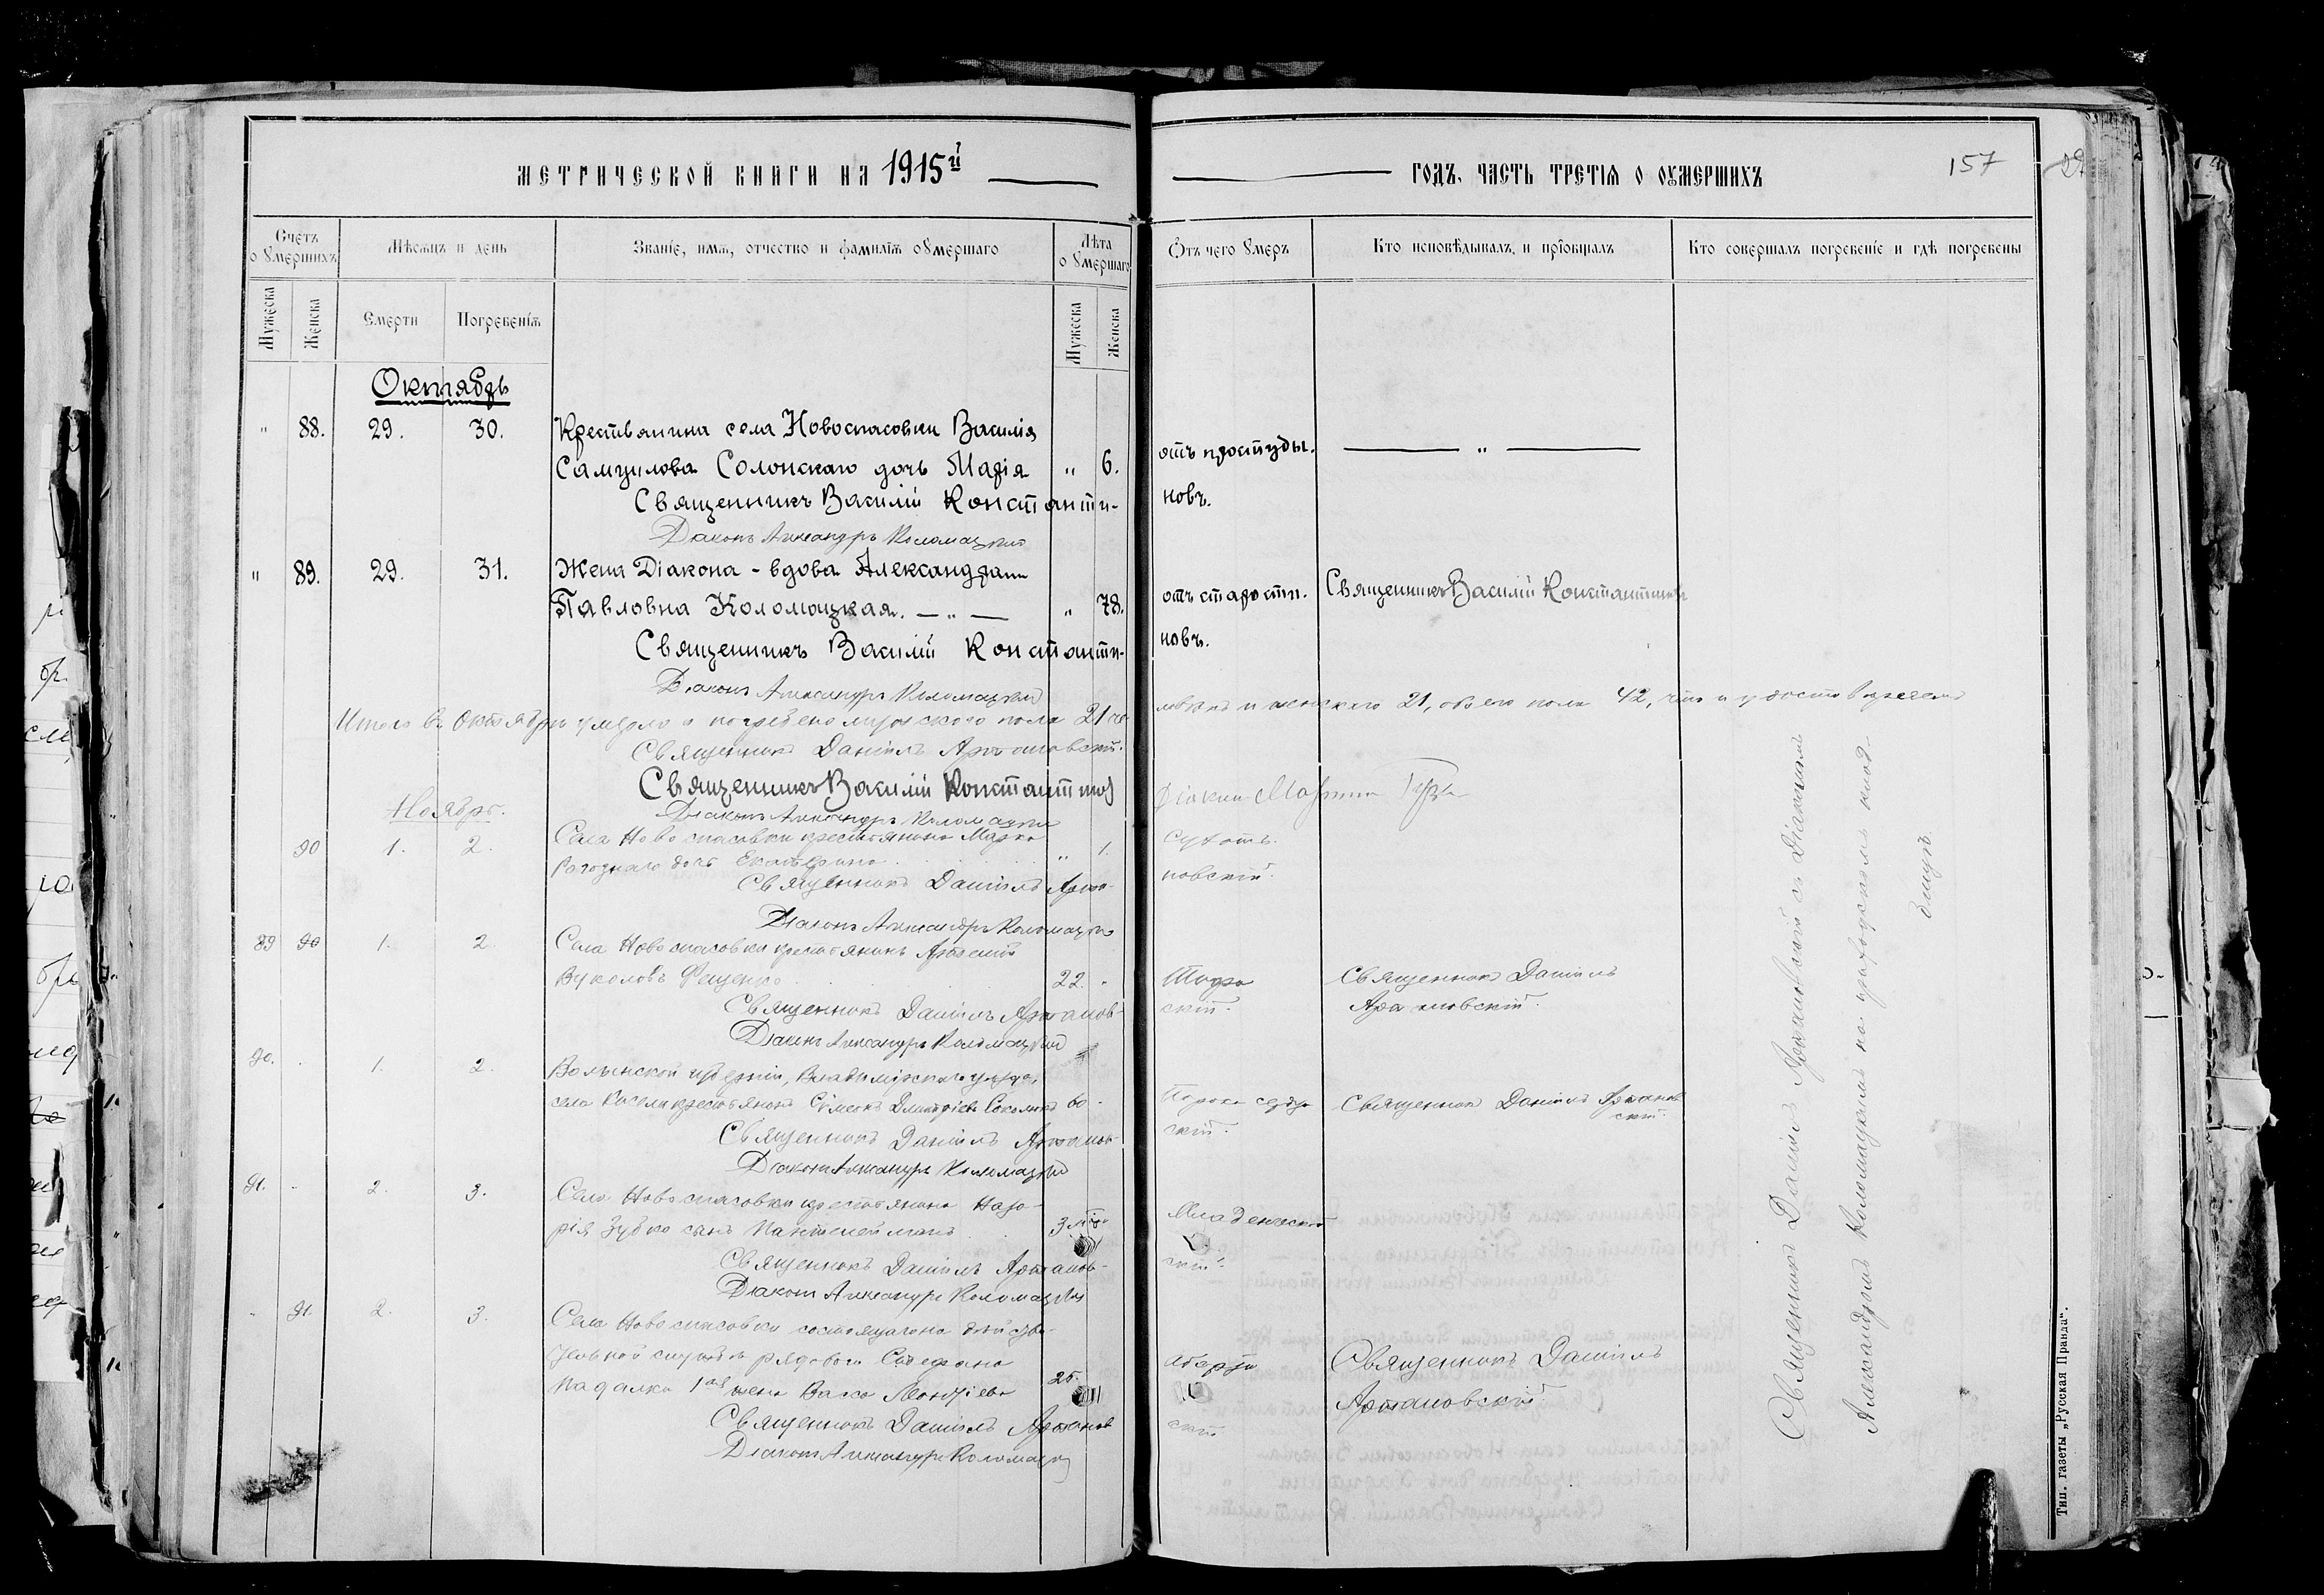 МЕТРИЧЕСКОЙ КНИГИ НА 1915й
ГОДЪ, ЧАСТЬ ТРЕТІЯ О ОУМЕРШИХЪ
157
Счетъ о Умершихъ
Мѣсяцъ и день
Званіе, имя, отчество и фамилія оУмершаго
Лѣта оУмершаго
Отъ чего Умеръ
Кто исповѣдывалъ и пріобщалъ
Кто совершалъ погребеніе и гдѣ погребены
Мужеска
Женска
Смерти
Погребенія
Мужеска
Женска
Октябрь
" 88. 29. 30. Крестьянина села Новоспасовки Василія
Самуилова Солонскаго дочь Марія " 6. отъ простуды. "
Священникъ Василій Константи-
новъ.
Діаконъ Александръ Коломацкій
" 89. 29. 31. Жена Діакона - вдова Александра
Павловна Коломацкая. " 78. отъ старости. Священникъ Василій Константиновъ
Священникъ Василій Константи-
новъ.
Діаконъ Александръ Коломацкій
Итого въ Октябрѣ умерло и погребено мужского пола 21 че-
ловѣкъ и женского 21, обоего пола 42, что и удостовѣряемъ
Священникъ Даніилъ Артановскій.
Священникъ Василій Константинов
Діаконъ
Діаконъ Александръ Коломацкій
Ноябрь.
90 1. 2. Села Новоспасовки крестьянина Марка
дочь Екатерина " 1. Сухоть.
Священникъ Даніилъ Арта-
новскій.
Діаконъ Александръ Коломацкій
89 90 1. 2. Села Новоспасовки крестьянинъ Артемій
Вуколовъ Фещенко 22. " Тифа Священникъ Даніилъ
Артановскій.
Священникъ Даніилъ Артанов-
скій.
Діаконъ Александръ Коломацкій
90. 1. 2. Волынской губерніи, Владимірскаго уѣзда,
села крестьянинъ Симеонъ Дмитріевъ 60 - Порока сердца Священникъ Даніилъ Артанов
скій.
Священникъ Даніилъ Артанов-
скій.
Діаконъ Александръ Коломацкій
91. - 2. 3. Села Новоспасовки крестьянина Наза-
рія Зубко сынъ Пантелеймонъ 3 Младенческой
Священникъ Даніилъ Артанов-
скій.
Діаконъ Александръ Коломацкій
- 91. 2. 3. Села Новоспасовки состоящаго на дѣйстви-
тельной службѣ рядового Стефана
Падалки жена Васса Леонтіева 25. Священникъ Даніилъ
Артановскій
Священникъ Даніилъ Артанов
скій
Діаконъ Александръ Коломацкій
Священникъ Даніилъ Артановскій съ Діакономъ
Александромъ Коломацкимъ на приходскомъ клад-
бищѣ
Тип. газеты „Русская Правда“.